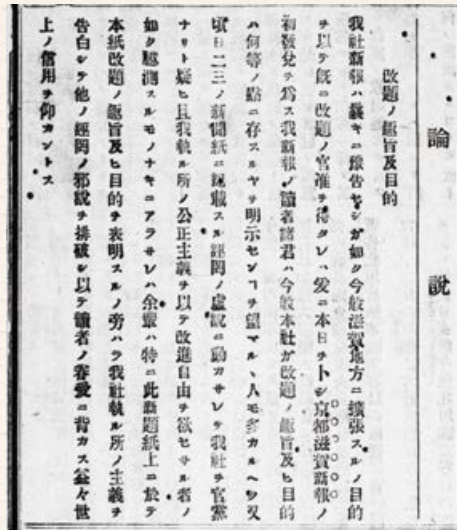 論説
改題ノ趣旨及目的
我社新報ハ曩キニ豫告セシガ如ク今般滋賀地方ニ擴張スルノ目的
ヲ以テ既ニ改題ノ官准ヲ得タレハ爰ニ本日ヲトシ京都滋賀新報ノ
初發兌ヲ爲ス我新報ノ讀者諸君ハ今般本社ガ改題ノ趣旨及ヒ目的
ハ何等ノ點ニ存スルヤヲ明示センヿヲ望マルヽ人モ多カルヘシ又
頃日二三ノ新聞紙ニ記載スル經罔ノ虚説ニ動カサレテ我社ヲ官黨
ナリト疑ヒ且我執ル所ノ公正主義ヲ以テ改進自由ヲ欲セサル者ノ
如ク臆測スルモノナキニアラサレハ余輩ハ特ニ此新題紙上ニ於テ
本紙改題ノ趣旨及ヒ目的ヲ表明スルノ旁ハラ我社執ル所ノ主義ヲ
告白シテ他ノ經罔ノ邪説ヲ排破シ以テ讀者ノ眷愛ニ背カス益々世
上ノ信用ヲ仰カントス